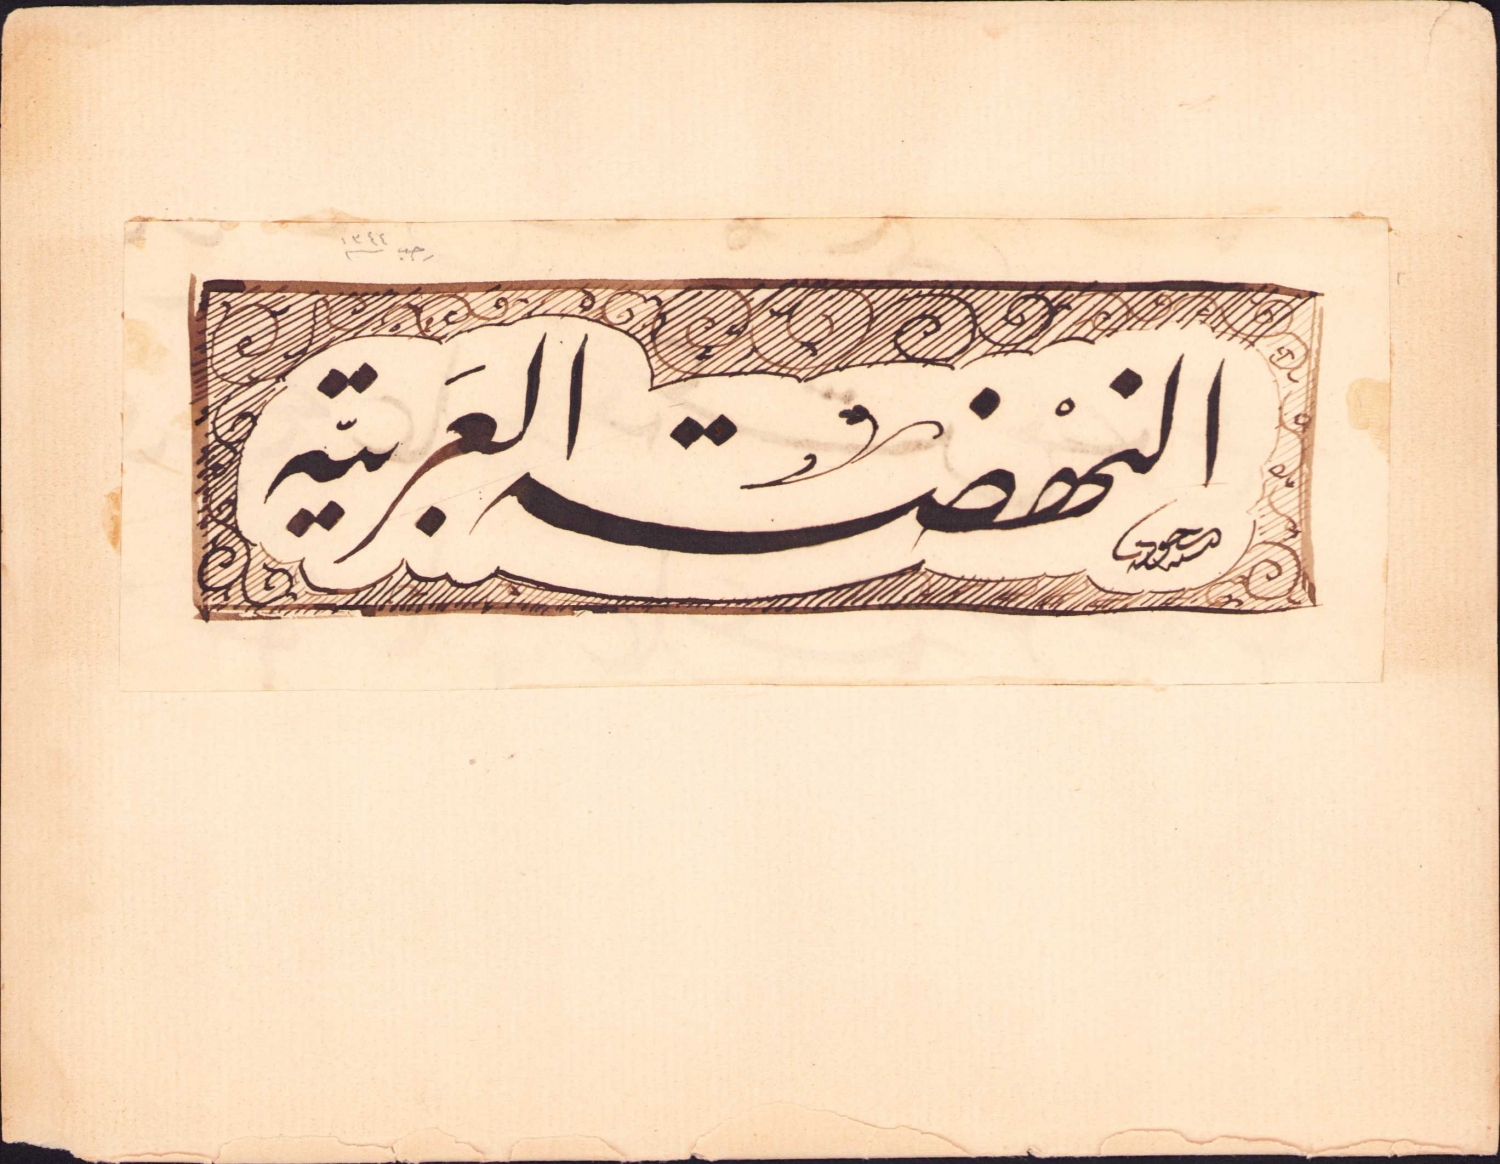 رجب ١٣٤٤
النهْضة العَربيّة